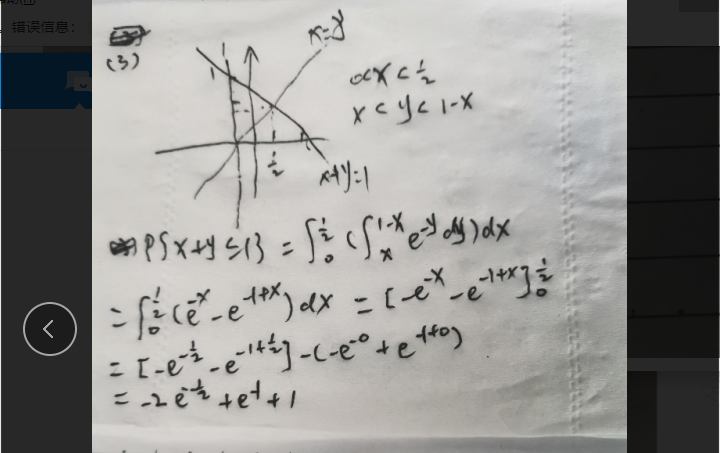 错误信息：
(3)
x=y
1
0<x<½
x<y<1-x
½
1
x+y=1
P{x+y≤1} = ∫₀^½ (∫ₓ^1-x e^-y dy) dx
= ∫₀^½ (e^-x - e^-1+x) dx = [-e^-x - e^-1+x]₀^½
= [-e^-½ - e^-1+½] - (-e^-0 + e^-1+0)
= -2e^-½ + e^-1 + 1